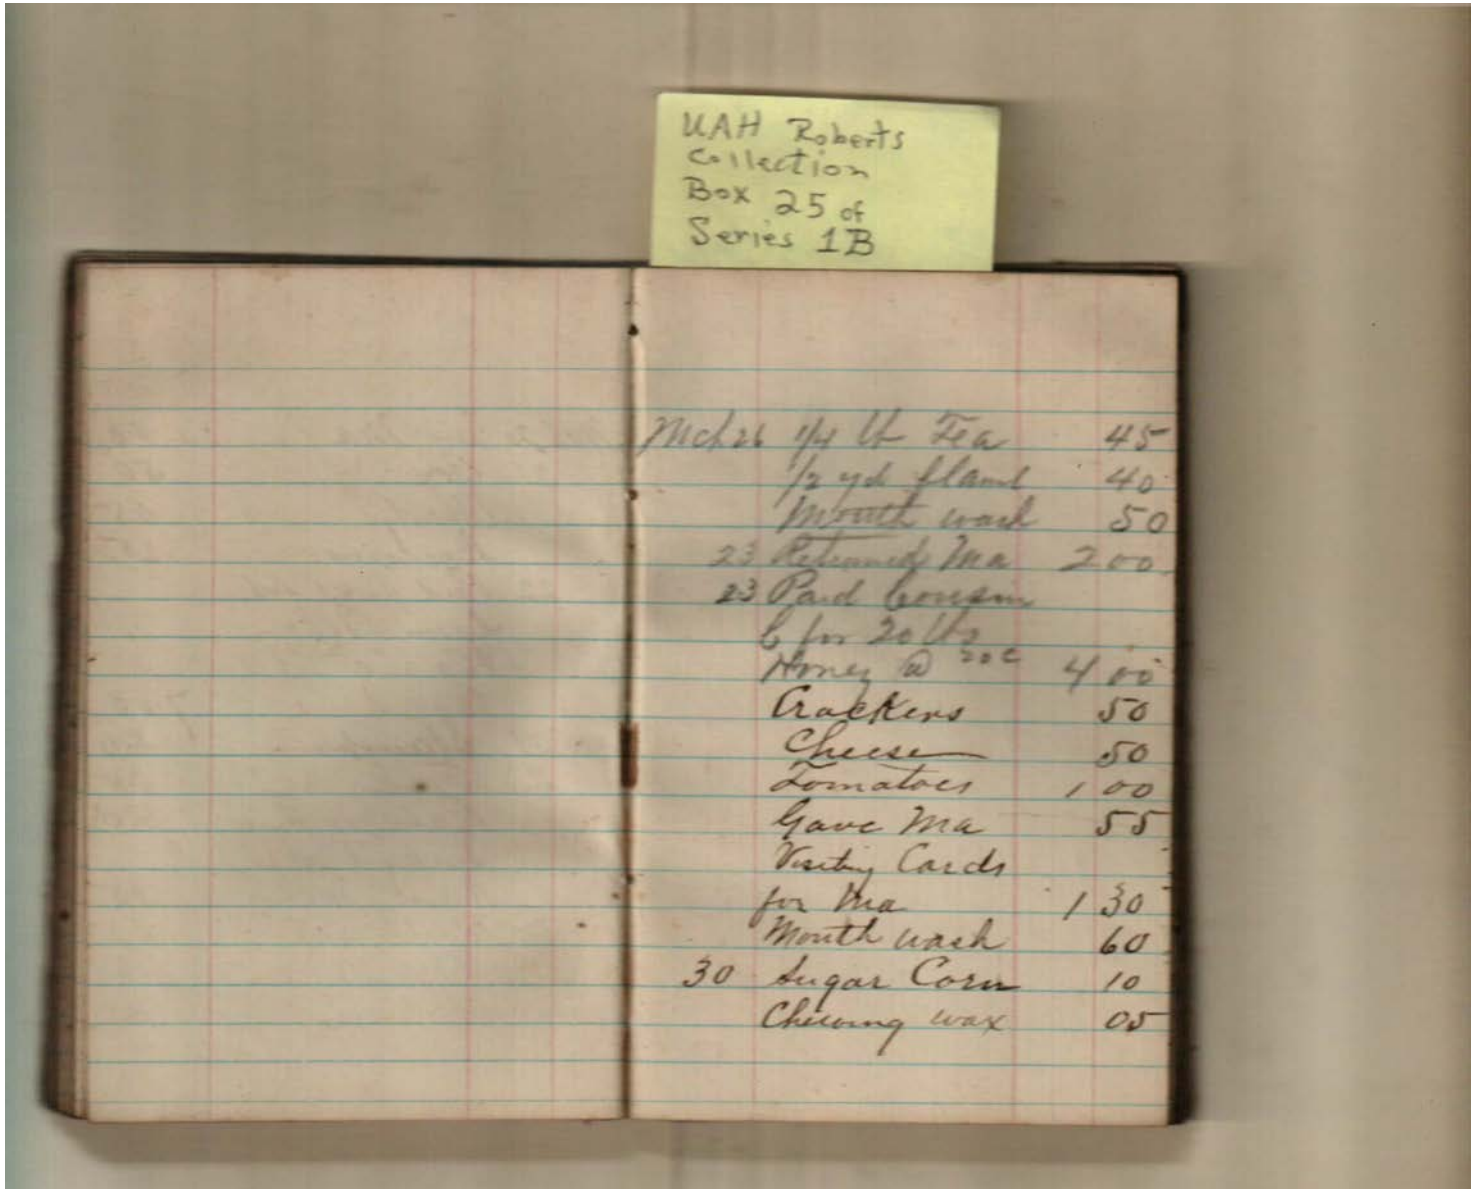 UAH Roberts
Collection
Box 25 of
Series 1B
Mch 26 1/4 lb Tea 45
1/2 yd flannel 40
Mouth wash 50
23 Returned Ma 2 00
23 Paid Cousin
C for 20 lbs
Honey @ 20c 4 00
Crackers 50
Cheese 50
Tomatoes 1 00
Gave Ma 55
Visiting Cards
for Ma 1 30
Mouth wash 60
30 Sugar Corn 10
Chewing wax 05